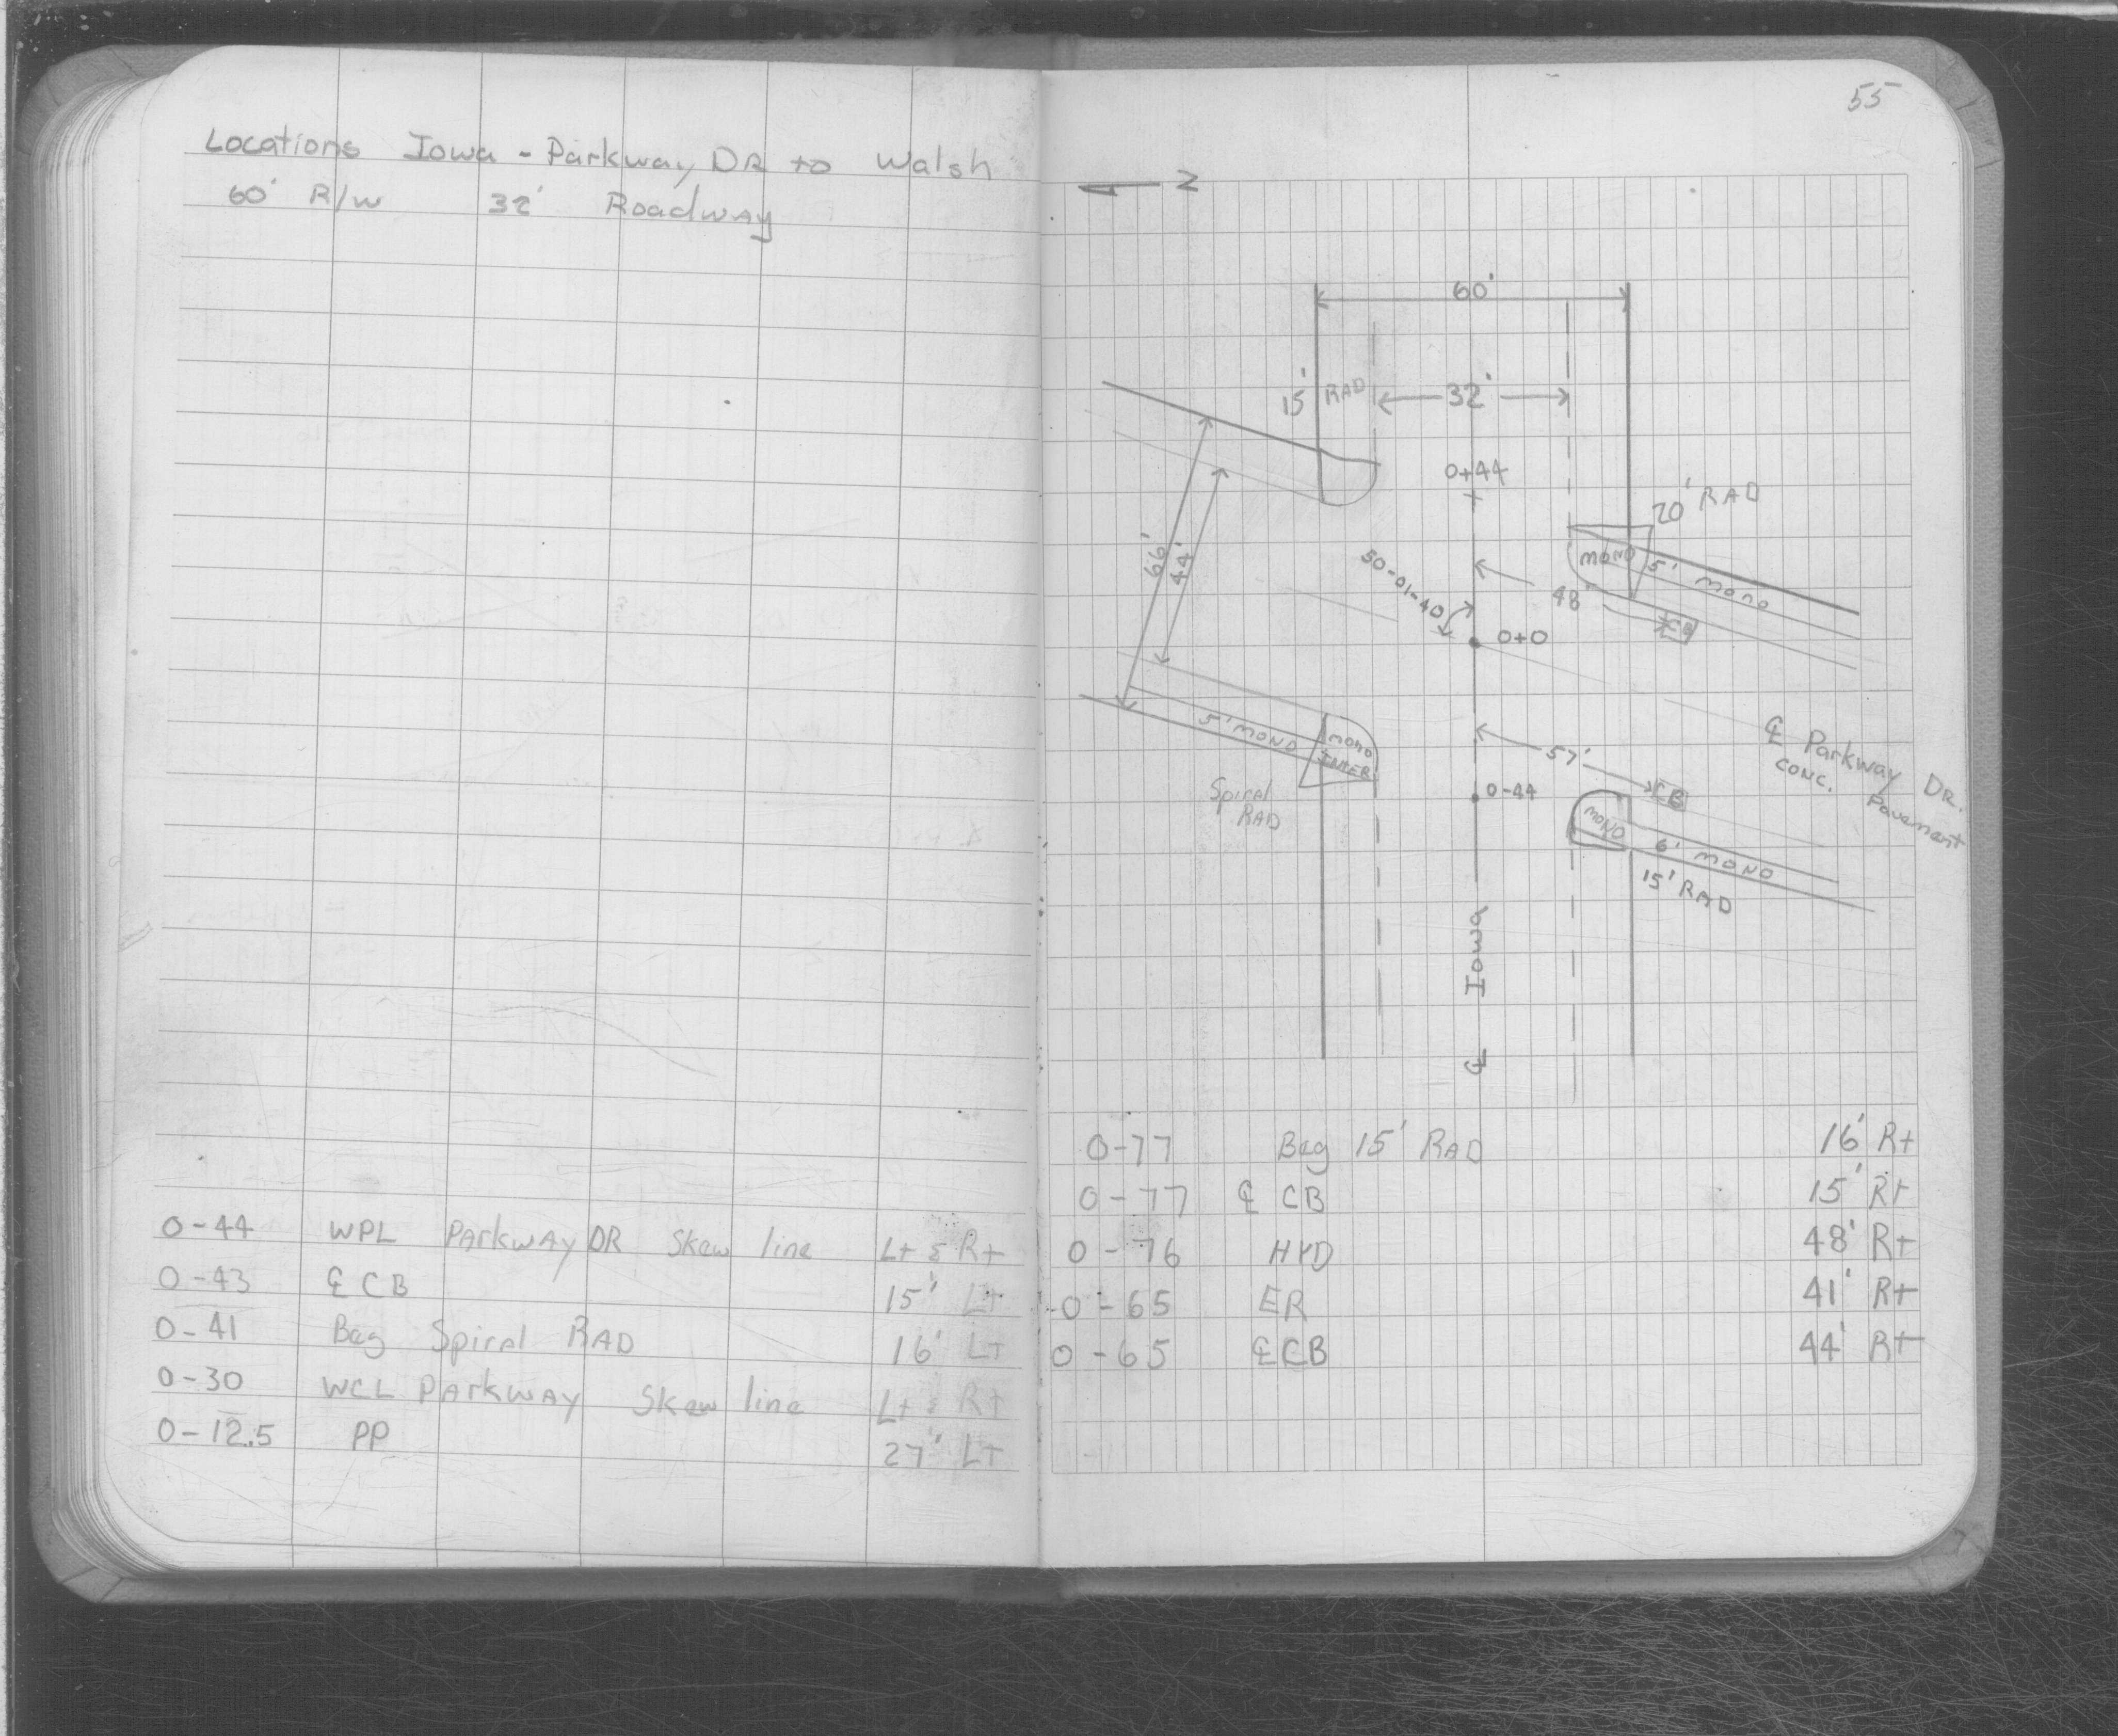 Locations Iowa - Parkway DR to Walsh
60' R/W 32' Roadway
0-44 WPL Parkway DR Skew line Lt & Rt
0-43 ℄ CB 15' Lt
0-41 Beg Spiral RAD 16' LT
0-30 WCL Parkway Skew line Lt & Rt
0-12.5 PP 27' LT
55
N
60'
15' RAD
32'
0+44
20' RAD
MONO
5' mono
66'
44'
50-01-40
48'
CB
0+0
5' MONO
mono
INTER
Spiral
RAD
57'
CB
0-44
MONO
6' MONO
15' RAD
℄ Parkway DR.
CONC. Pavement
℄ Iowa
0-77 Beg 15' RAD 16' Rt
0-77 ℄ CB 15' Rt
0-76 HYD 48' Rt
0-65 ER 41' Rt
0-65 ℄ CB 44' Rt